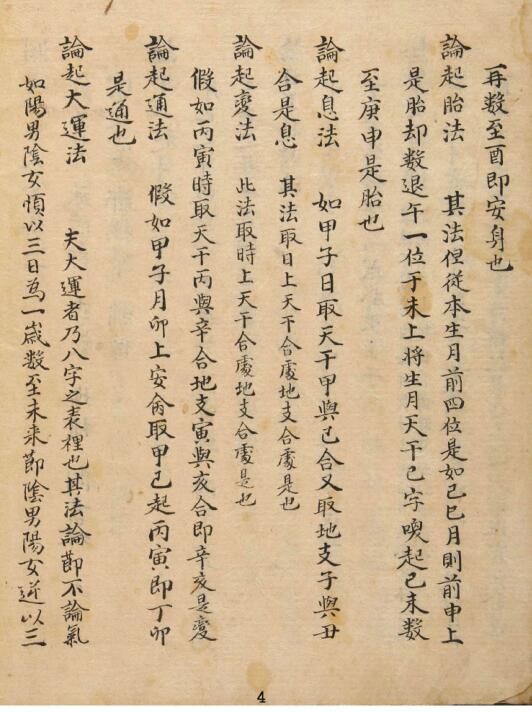 再数至酉即安身也
論起胎法　其法但從本生月前四位是如己巳月則前申上
是胎却数退午一位于未上将生月天干己字喚起己未数
至庚申是胎也
論起息法　如甲子日取天干甲與己合又取地支子與丑
合是息　其法取日上天干合處地支合處是也
論起变法　此法取時上天干合處地支合處是也
假如丙寅時取天干丙與辛合地支寅與亥合即辛亥是变
論起通法　假如甲子月卯上安命取甲己起丙寅即丁卯
是通也
論起大運法　夫大運者乃八字之表裡也其法論節不論氣
如陽男陰女順以三日為一歲数至未来節陰男陽女逆以三
4